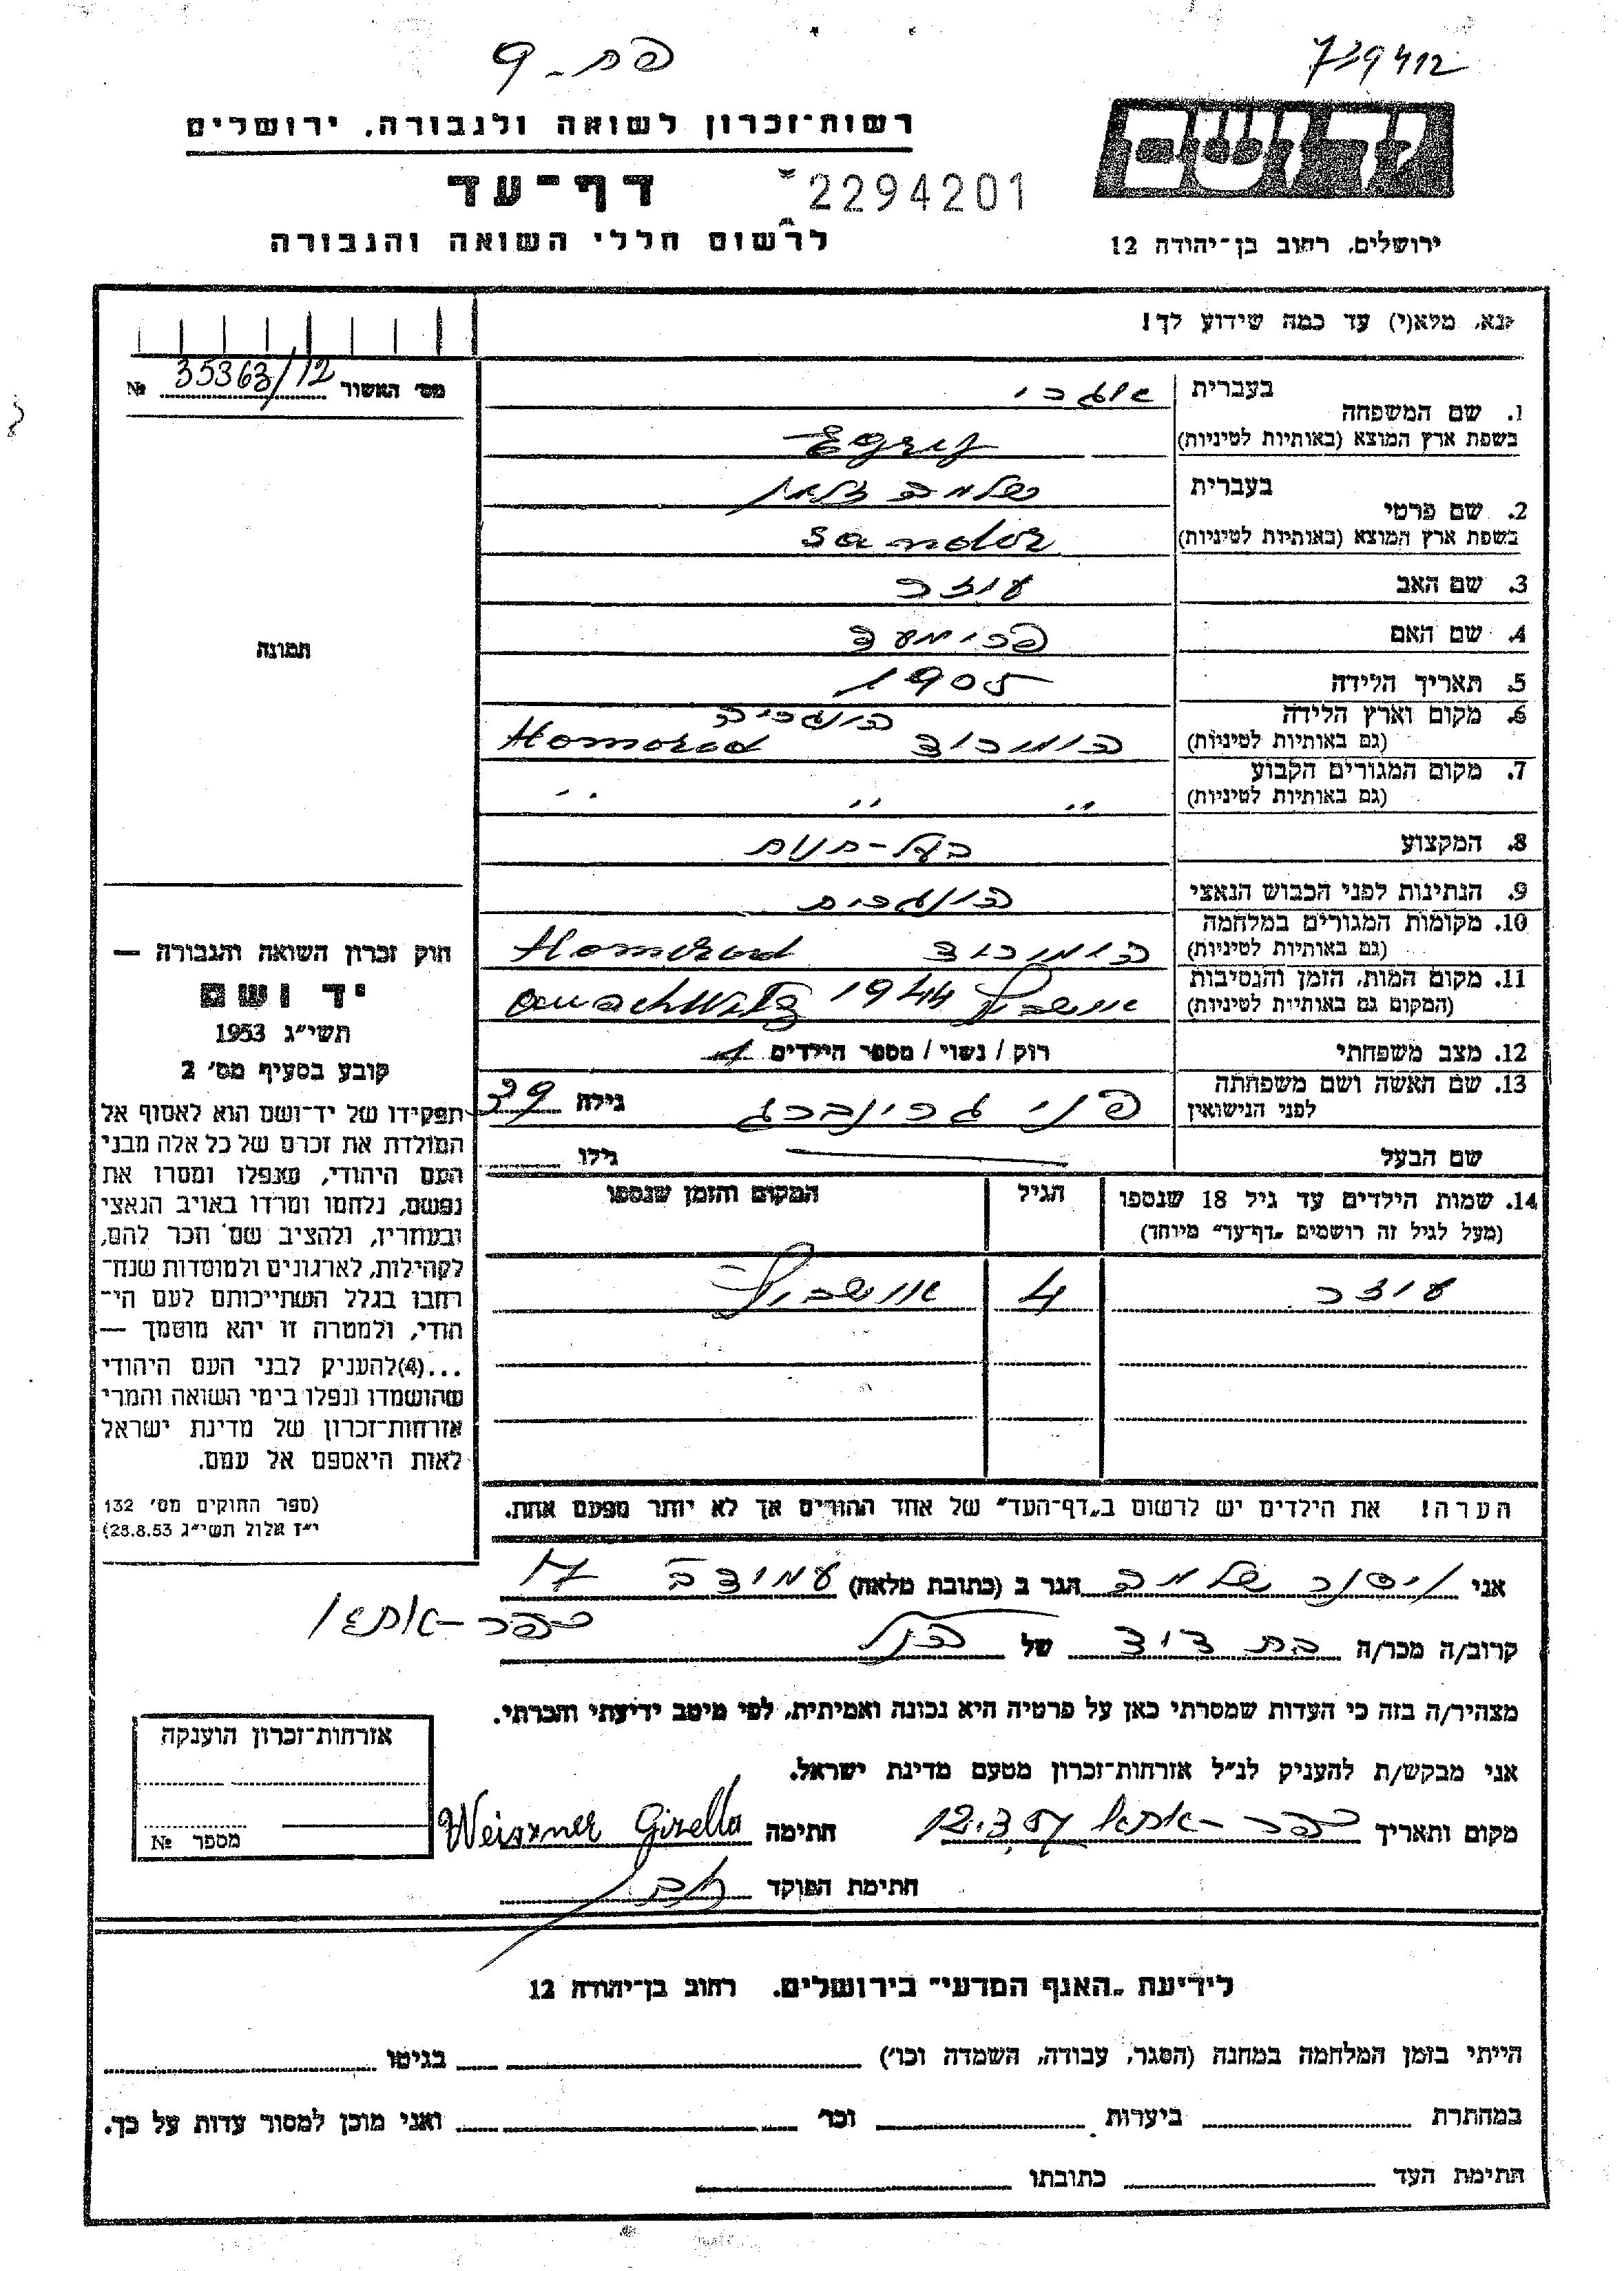 פח-9
739412
רשות־זכרון לשואה ולגבורה, ירושלים
דף־עד
2294201
לרשום חללי השואה והגבורה
יד ושם
ירושלים, רחוב בן־יהודה 12
נא, מלא(י) עד כמה שידוע לך!
מס׳ האשור 35363/12 №
תמונה
1. שם המשפחה
בעברית אוגרי
בשפת ארץ המוצא (באותיות לטיניות) Egrij
2. שם פרטי
בעברית שלמה זלמן
בשפת ארץ המוצא (באותיות לטיניות) Sandor
3. שם האב עוזר
4. שם האם
5. תאריך הלידה 1905
6. מקום וארץ הלידה הונגריה
(גם באותיות לטיניות) הומרוד Homorod
7. מקום המגורים הקבוע
(גם באותיות לטיניות) " " "
8. המקצוע בעל-חנות
9. הנתינות לפני הכבוש הנאצי הונגרית
10. מקומות המגורים במלחמה
(גם באותיות לטיניות) הומרוד Homorod
11. מקום המות, הזמן והנסיבות
(המקום גם באותיות לטיניות) אושביץ 1944 auschwitz
12. מצב משפחתי רווק / נשוי / מספר הילדים 1
13. שם האשה ושם משפחתה
לפני הנישואין פני גרינברג גילה 39
שם הבעל גילו
14. שמות הילדים עד גיל 18 שנספו
(מעל לגיל זה רושמים „דף־עד״ מיוחד)
הגיל
המקום והזמן שנספו
עוזר 4 אושביץ
הערה! את הילדים יש לרשום ב„דף־העד״ של אחד ההורים אך לא יותר מפעם אחת.
חוק זכרון השואה והגבורה —
יד ושם
תשי״ג 1953
קובע בסעיף מס׳ 2
תפקידו של יד־ושם הוא לאסוף אל
המולדת את זכרם של כל אלה מבני
העם היהודי, שנפלו ומסרו את
נפשם, נלחמו ומרדו באויב הנאצי
ובעוזריו, ולהציב שם וזכר להם,
לקהילות, לארגונים ולמוסדות שנח־
רבו בגלל השתייכותם לעם הי־
הודי, ולמטרה זו יהא מוסמך —
...(4)להעניק לבני העם היהודי
שהושמדו ונפלו בימי השואה והמרי
אזרחות־זכרון של מדינת ישראל
לאות היאספם אל עמם.
(ספר החוקים מס׳ 132
י״ז אלול תשי״ג 28.8.53)
אני ויסנר שלמה הגר ב (כתובת מלאה)
כפר-אתא
קרוב/ה מכר/ה בת דוד של הנ״ל
מצהיר/ה בזה כי העדות שמסרתי כאן על פרטיה היא נכונה ואמיתית, לפי מיטב ידיעתי והכרתי.
אני מבקש/ת להעניק לנ״ל אזרחות־זכרון מטעם מדינת ישראל.
מקום ותאריך כפר-אתא 12.3.57 חתימה Weiszner Gizella
חתימת הפוקד
אזרחות־זכרון הוענקה
מספר №
לידיעת „האגף המדעי״ בירושלים. רחוב בן־יהודה 12
הייתי בזמן המלחמה במחנה (הסגר, עבודה, השמדה וכו׳) בגיטו
במחתרת ביערות וכו׳ ואני מוכן למסור עדות על כך.
חתימת העד כתובתו